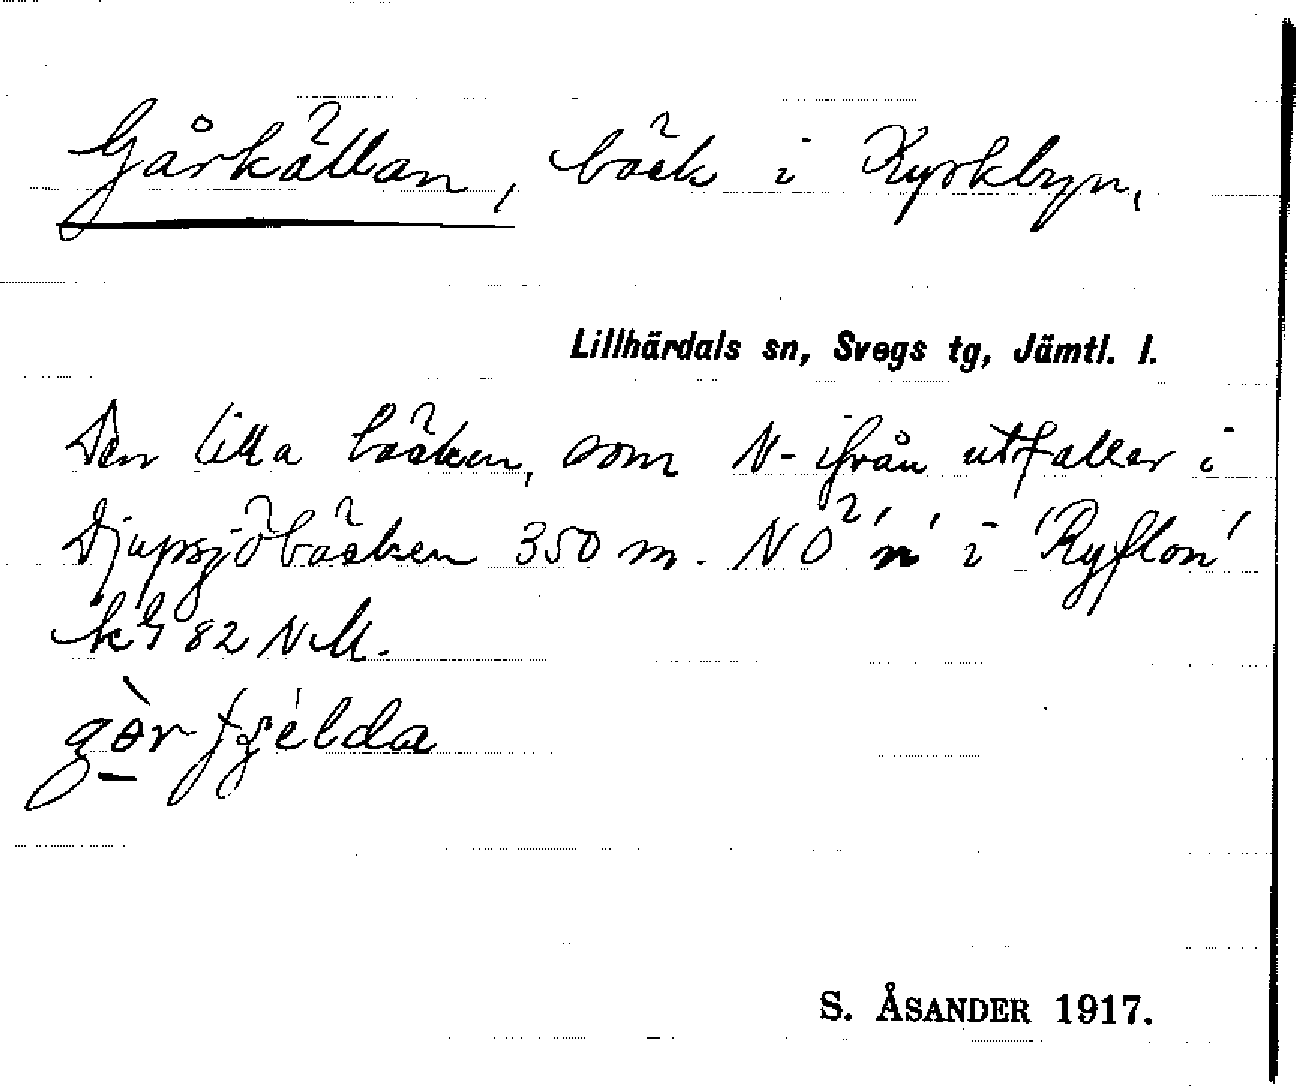 Gårkällan, bäck i Kyrkbyn.
Lillhärdals sn, Svegs tg, Jämtl. l.
Den lilla bäcken, som N-ifrån utfaller i
Djupsjöbäcken 350 m. NÖ 'n' i 'Ryflon'
kbl 82 NM.
gòr fjélda
S. ÅSANDER 1917.